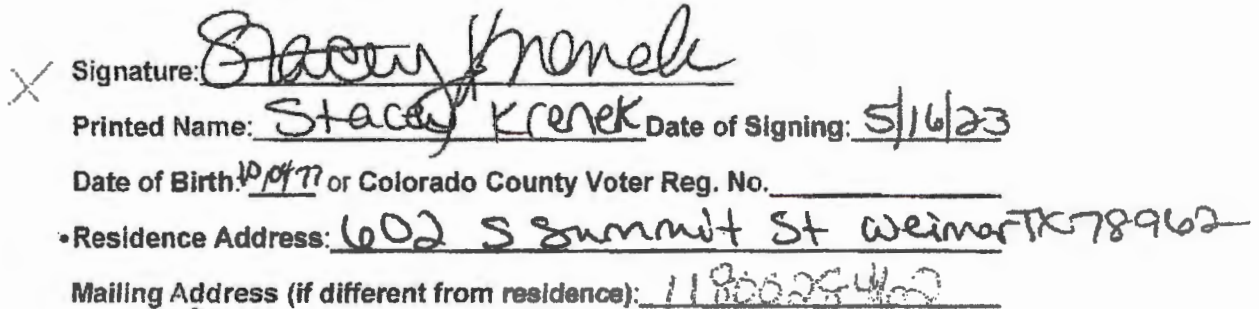 X Signature: Stacey Krenek
Printed Name: Stacey Krenek Date of Signing: 5/16/23
Date of Birth: 10/04/77 or Colorado County Voter Reg. No.
•Residence Address: 602 S Summit St Weimar TX 78962
Mailing Address (if different from residence):